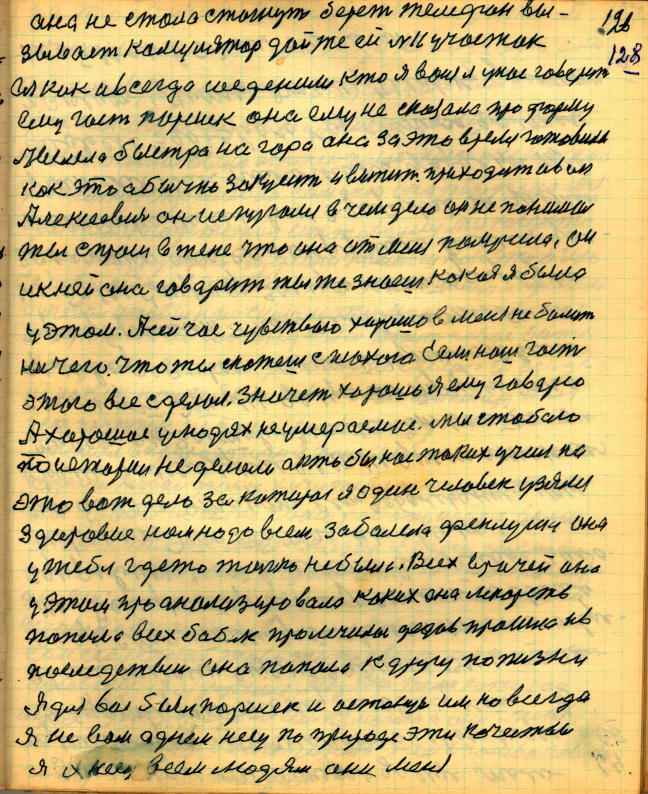 она не стола стогнуть берет телефон вы-
зывает камулятор дойте ей №11 участок
ей как и всегда соеденили кто я вош я у нас говорит
ему гост поршек она ему не сказала про форму
Явелела быстра на гора она за это время готовила
как это обычно закусит и выпит. приходит
Алексеевич он испугался в чем дело он не понимал
что она от меня
и к ней она говорит ты же знаеш какая я была
у этом. А сейчас чувствою харашо в меня не болит
ничего. что ты скажеш с такога Если наш гост
этого все сделал. Значет харашо я ему говорю
А харашое у людях не умераемое. мы с тобою
по истории не делали а кто бы нас таких учил на
это вот дело за которае я один человек узялся
Здоровие нам надо всем заболела она
у тебя где то только не была. Всех врачей она
у этом проанализировало каких она лекарств
попила всех бабок пролечила дедов прошла и в
последствии она попала к другу по жизни
Я для вас был поршек и остануся им на всегда
Я не вам аднем несу по природе эти качества
Я их несу всем людям они меня
126
128